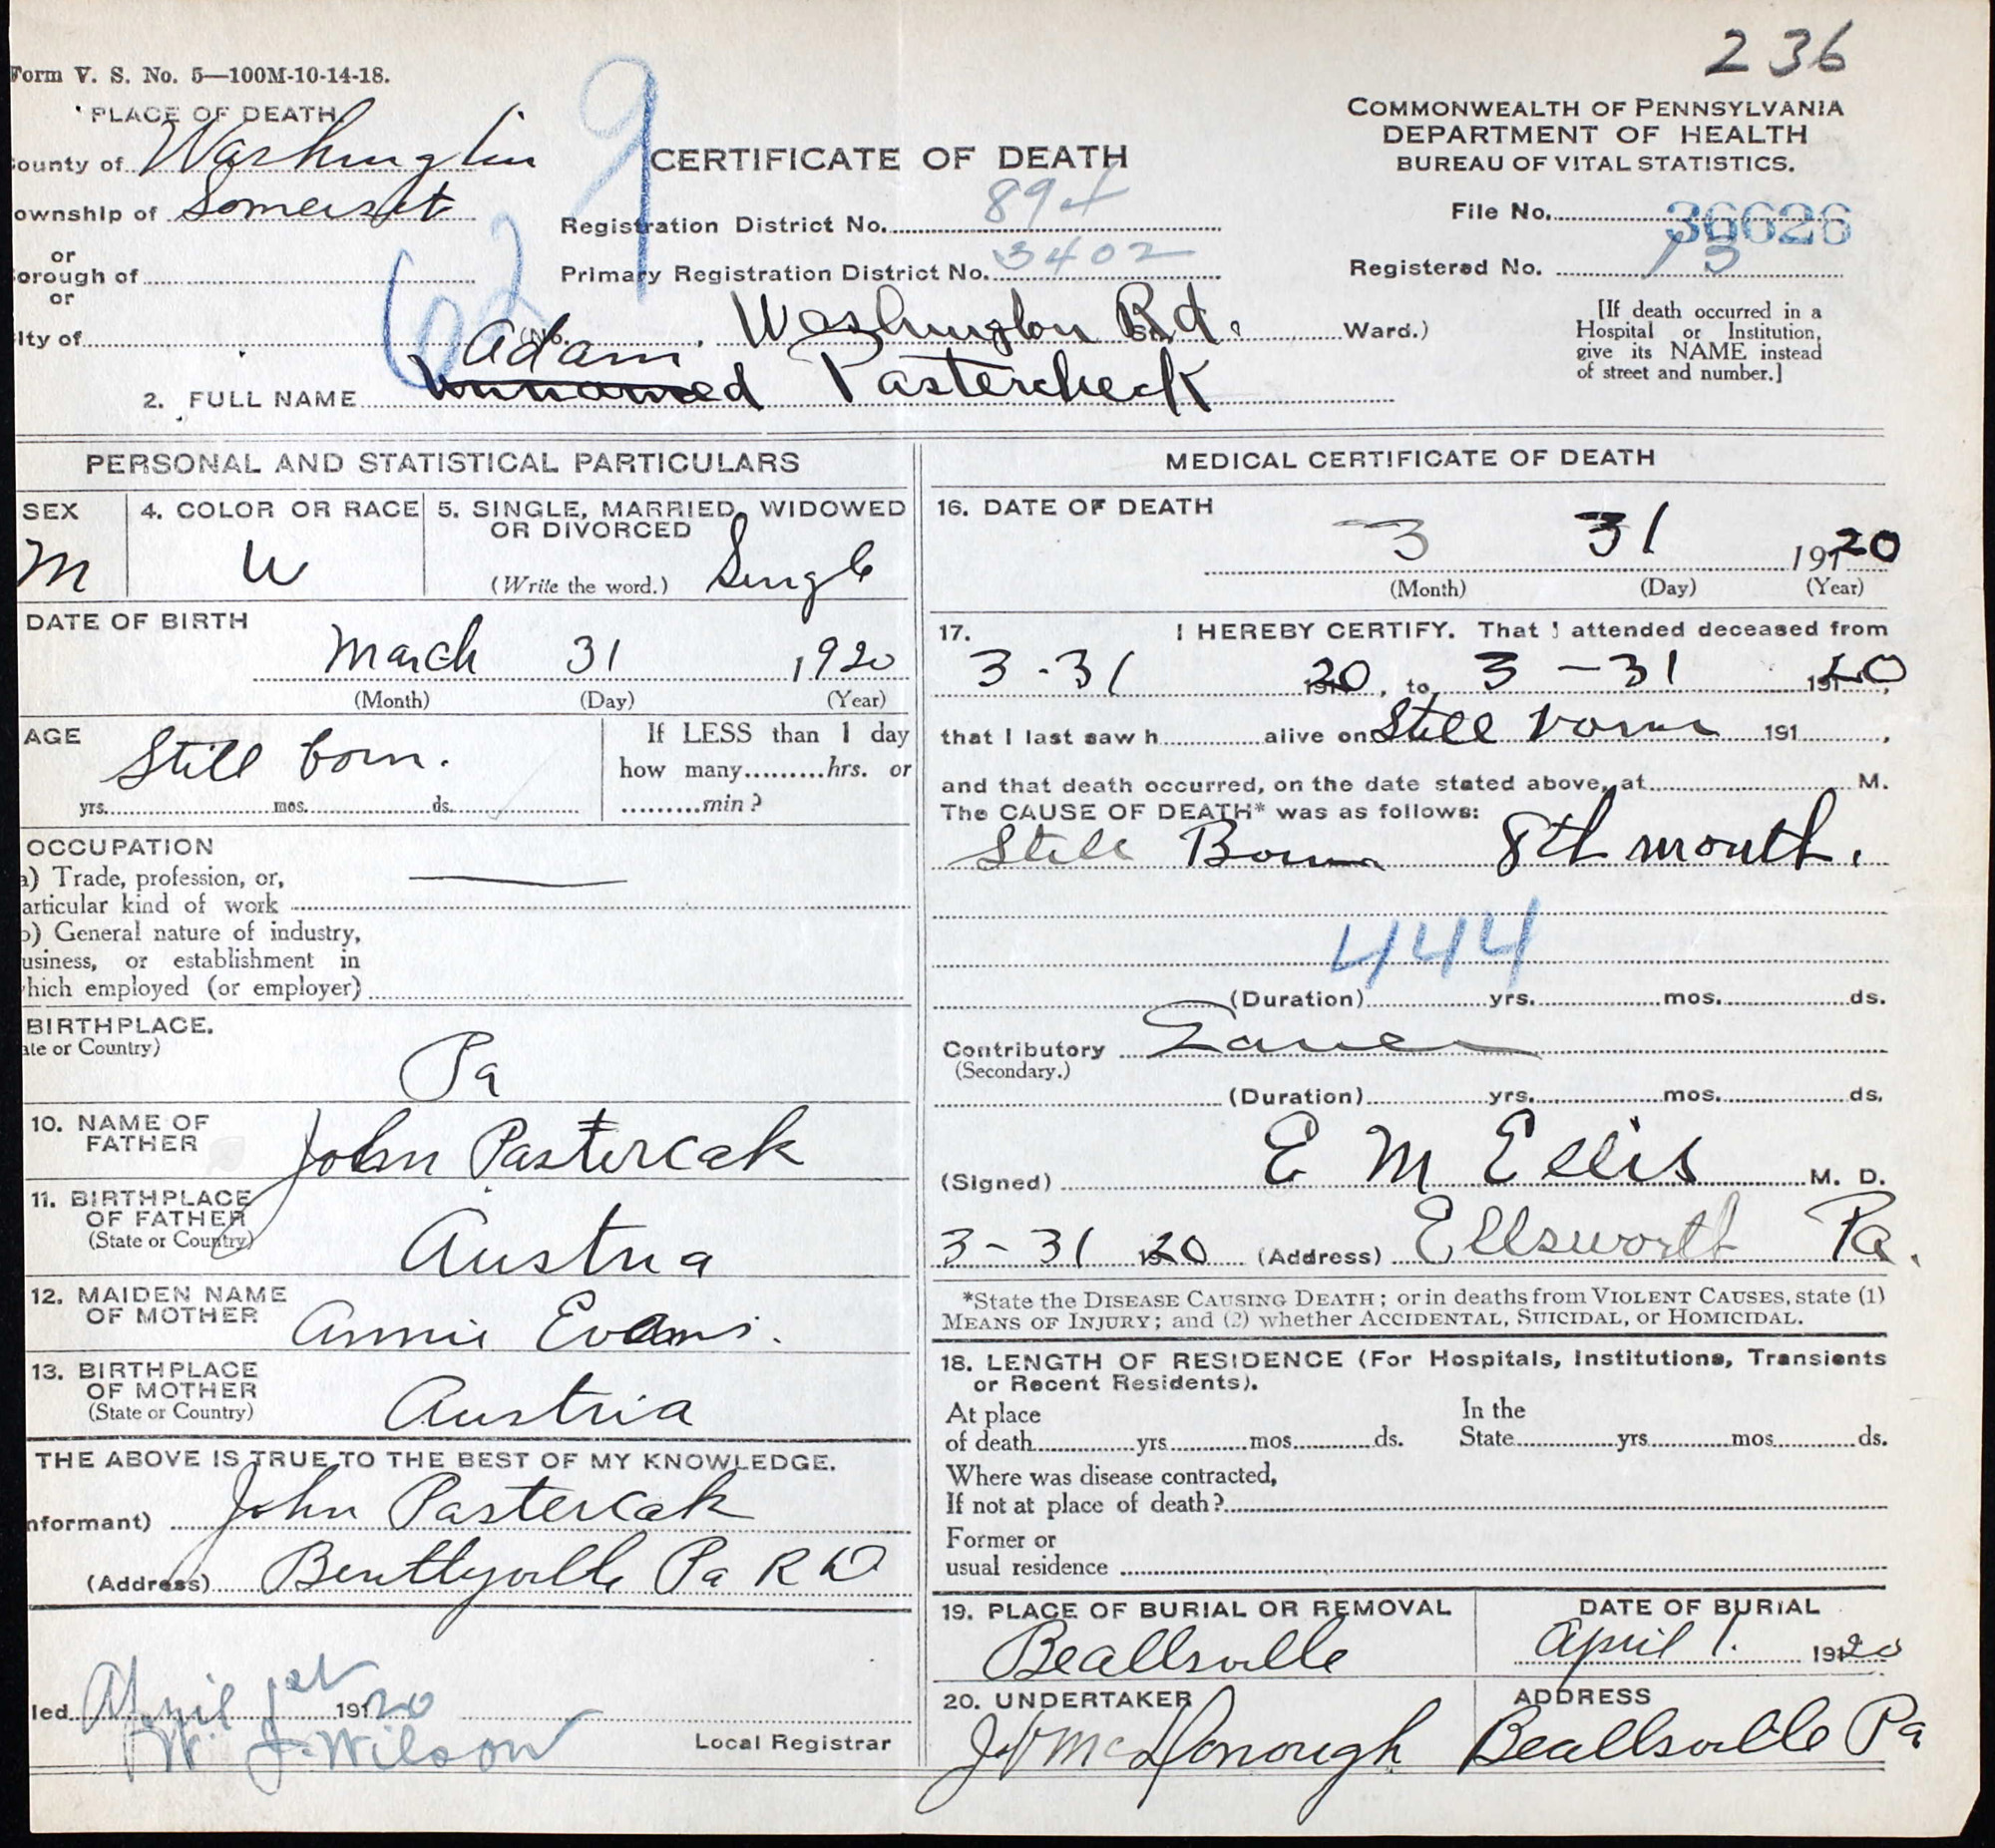 236
Form V. S. No. 5—100M-10-14-18.
PLACE OF DEATH
ounty of Washington
ownship of Somerset
or
orough of
or
ity of
629
CERTIFICATE OF DEATH
Registration District No. 894
Primary Registration District No. 3402
(No. Washington Rd. St. Ward.)
COMMONWEALTH OF PENNSYLVANIA
DEPARTMENT OF HEALTH
BUREAU OF VITAL STATISTICS.
File No. 36626
Registered No. 13
[If death occurred in a
Hospital or Institution,
give its NAME instead
of street and number.]
Adam
2. FULL NAME unnamed Pastercheck
PERSONAL AND STATISTICAL PARTICULARS
SEX
M
4. COLOR OR RACE
W
5. SINGLE, MARRIED, WIDOWED
OR DIVORCED
(Write the word.) Single
DATE OF BIRTH
March 31 1920
(Month) (Day) (Year)
AGE
Still born.
yrs. mos. ds.
If LESS than 1 day
how many hrs. or
min?
OCCUPATION
a) Trade, profession, or,
articular kind of work
b) General nature of industry,
usiness, or establishment in
hich employed (or employer)
BIRTHPLACE.
ate or Country)
Pa
10. NAME OF
FATHER
John Pastercak
11. BIRTHPLACE
OF FATHER
(State or Country)
Austria
12. MAIDEN NAME
OF MOTHER
Annie Evans.
13. BIRTHPLACE
OF MOTHER
(State or Country)
Austria
THE ABOVE IS TRUE TO THE BEST OF MY KNOWLEDGE.
nformant) John Pastercak
(Address) Bentleyville Pa R D
led April 1st 1920
W. J. Wilson
Local Registrar
MEDICAL CERTIFICATE OF DEATH
16. DATE OF DEATH
3 31 1920
(Month) (Day) (Year)
17. I HEREBY CERTIFY. That I attended deceased from
3-31 1920, to 3-31 1920,
that I last saw h alive on Still born 191 ,
and that death occurred, on the date stated above, at M.
The CAUSE OF DEATH* was as follows:
Still Born 8th month.
444
(Duration) yrs. mos. ds.
Contributory
(Secondary.)
(Duration) yrs. mos. ds.
(Signed) E M Ellis M. D.
3-31 1920 (Address) Ellsworth Pa.
*State the DISEASE CAUSING DEATH; or in deaths from VIOLENT CAUSES, state (1)
MEANS OF INJURY; and (2) whether ACCIDENTAL, SUICIDAL, or HOMICIDAL.
18. LENGTH OF RESIDENCE (For Hospitals, Institutions, Transients
or Recent Residents).
At place
of death yrs mos ds.
In the
State yrs mos ds.
Where was disease contracted,
If not at place of death?
Former or
usual residence
19. PLACE OF BURIAL OR REMOVAL
Beallsville
DATE OF BURIAL
April 1. 1920
20. UNDERTAKER
McDonough
ADDRESS
Beallsville Pa